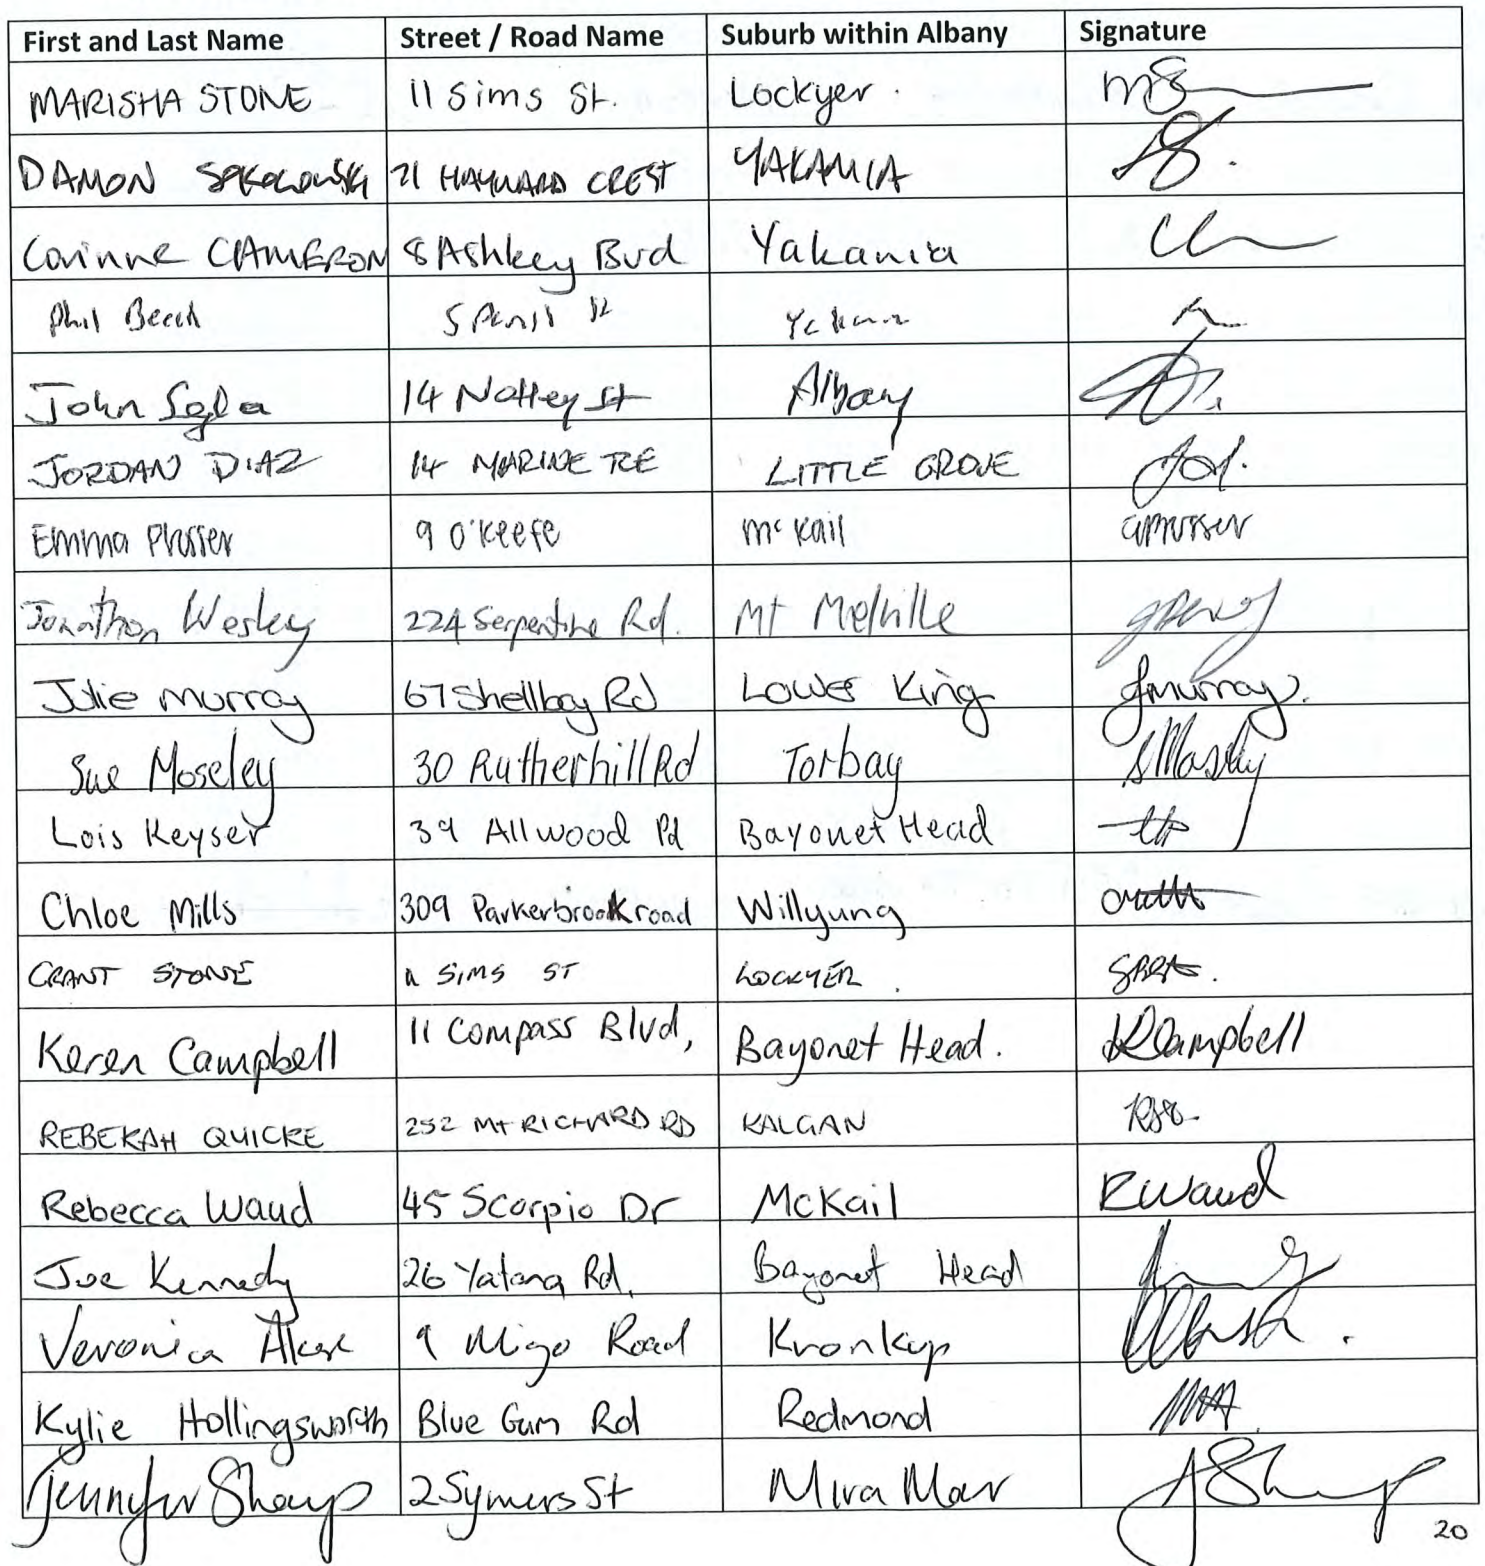 First and Last Name Street / Road Name Suburb within Albany Signature
MARISHA STONE 11 Sims St. Lockyer. MS
DAMON SOKOLOWSKI 21 HAYWARD CREST YAKAMIA
Corinne CAMERON 8 Ashkey Bvd Yakamia
Phil Beech 5
John 14 Notley St Albany
JORDAN DIAZ 14 MARINE TCE LITTLE GROVE
Emma Prosser 9 O'Keefe McKail
Jonathon Wesley 224 Serpentine Rd. Mt Melville
Julie Murray 67 Shellbay Rd Lower King JMurray.
Sue Moseley 30 Rutherhill Rd Torbay SMoseley
Lois Keyser 39 Allwood Pd Bayonet Head
Chloe Mills 309 Parkerbrook road Willyung
GRANT STONE 11 SIMS ST LOCKYER.
Keren Campbell 11 Compass Blvd, Bayonet Head. KCampbell
REBEKAH QUICKE 252 Mt RICHARD RD KALGAN
Rebecca Waud 45 Scorpio Dr McKail RWaud
Joe Kennedy 26 Yatana Rd. Bayonet Head
Veronica 9 Migo Road Kronkup
Kylie Hollingsworth Blue Gum Rd Redmond
Jennifer Sharp 2 Symers St Mira Mar JSharp
20